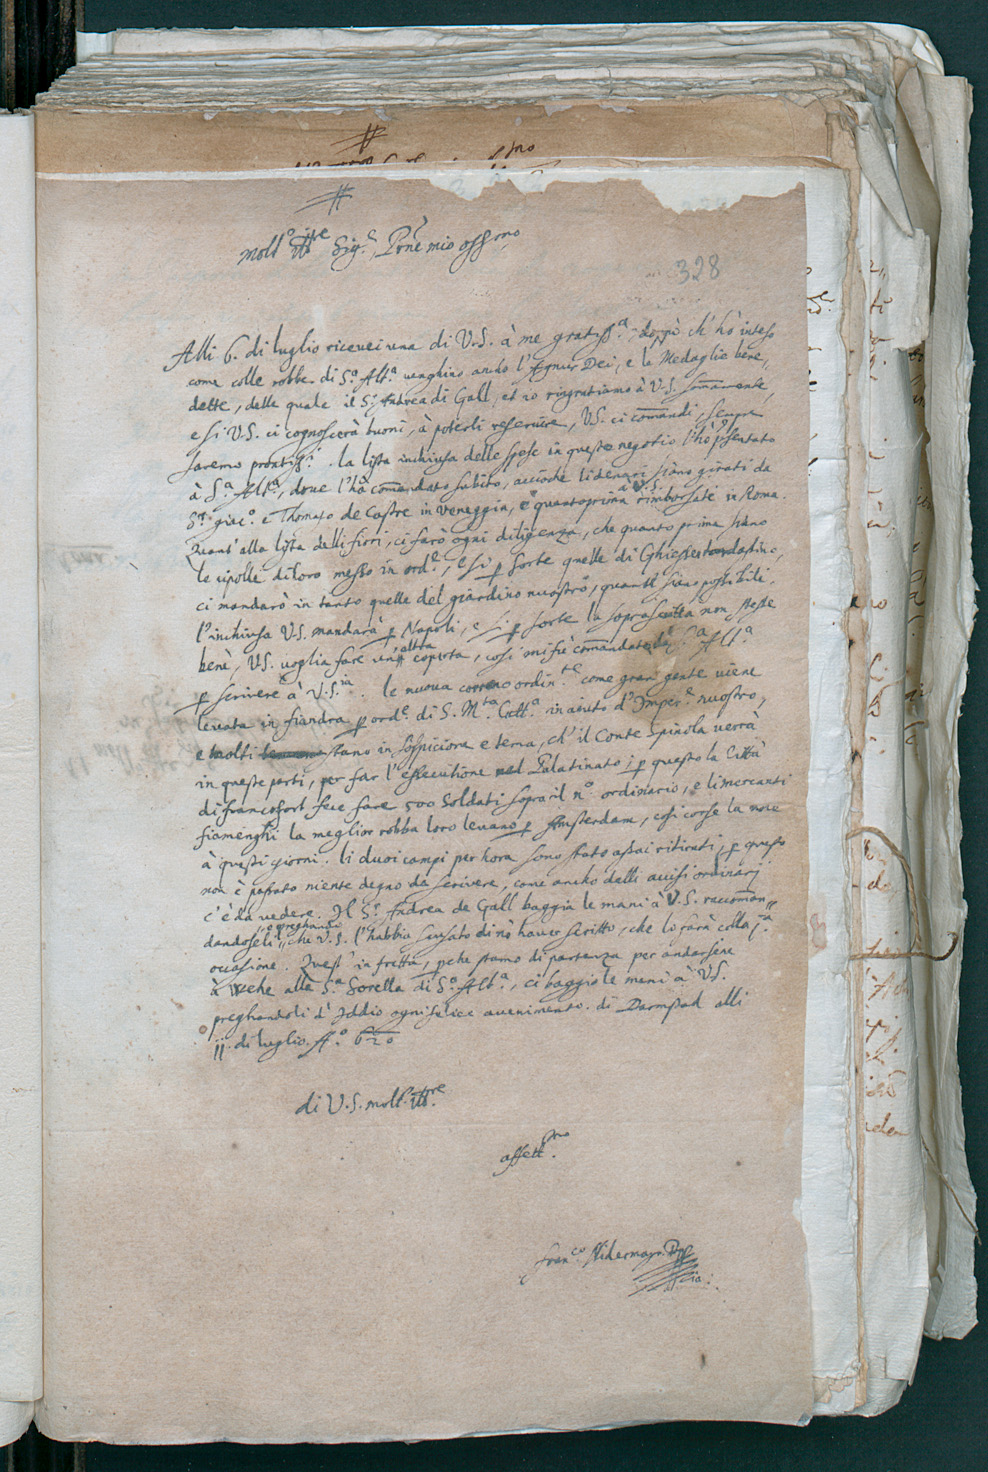 Molt.o Ill.re Sig.r Prone mio oss.mo
328
Alli 6. di luglio riceuei una di V.S. à me gratiss.a doppò ch' hò inteso
come colle robbe di S.a Alt.a uenghino ancho l'Agnus Dei, e le Medaglie bene„
dette, delle quale il S.r Andrea di Gall, et io ringratiamo à V.S. sommamente,
e si V.S. ci cognoscerà buoni, à poterli reseruire, V.S. ci comandi, sempre
saremo prontiss.i. la lista inchiusa delle spese in questo negotio l'hò p̃sentato
à S.a Alt.a, doue l'hà comandato subito, acciochè li denari siano girati da
S.ri Giac.o e Thomaso de Castre in Veneggia, e quantoprima à V.S. rimborsate in Roma.
Quant' alla lista delli fiori, ci farò ogni diligenza, che quanto prima siano
le cipolle di loro messo in ord.e, e si p sorte quelle di Ghiesser tardassino,
ci mandarò in tanto quelle del giardino nuostro, quanti siano possibili.
l'inchiusa V.S. mandarà p Napoli, e si p sorte la soprascritta non steste
benè, V.S. uoglia fare un altra coperta, così mi fù comandato da S.a Alt.a
p scriuere à V.S.ria. le nuoua correno ordin.te come gran gente uiene
leuata in fiandra p ord.e di S. M.ta Catt.a in aiuto d'Imper.e nuostro,
e molti stano in sospicione e tema, ch' il Conte Spinola uerrà
in queste parti, per far l'essecutione nel Palatinato; p questo la Città
di francofort fece fare 500 Soldati sopra il n.o ordinario, e li mercanti
fiamenghi la meglior robba loro leuano p Amsterdam, così corse la uoce
à questi giorni. li duoi campi per hora sono stato assai ritirati, p questo
non è passato niente degno da scriuere, come ancho dalli auisi ordinarij
c'è da uedere. Il S.r Andrea de Gall baggia le mani à V.S. raccoman„
dandoseli e preghandi che V.S. l'habbia scusato di nò hauer scritto, che lo farà colla p.a
occasione. Quest' in fretta, p che stamo di partenza per andarsene
à che alla S.a Sorella di S.a Alt.a, ci baggio le mani à V.S.
preghandoli d'Iddio ogni felice auuenimento. di Darmstad alli
11 di luglio A.o 620
di V.S. molt. Ill.re
affett.mo
Fran.co Nidermayr